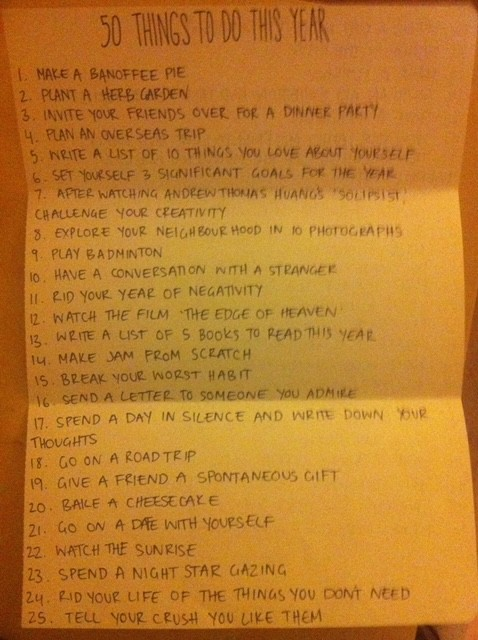 50 THINGS TO DO THIS YEAR
1. MAKE A BANOFFEE PIE
2. PLANT A HERB GARDEN
3. INVITE YOUR FRIENDS OVER FOR A DINNER PARTY
4. PLAN AN OVERSEAS TRIP
5. WRITE A LIST OF 10 THINGS YOU LOVE ABOUT YOURSELF
6. SET YOURSELF 3 SIGNIFICANT GOALS FOR THE YEAR
7. AFTER WATCHING ANDREW THOMAS HUANG'S 'SOLIPSIST,'
CHALLENGE YOUR CREATIVITY
8. EXPLORE YOUR NEIGHBOURHOOD IN 10 PHOTOGRAPHS
9. PLAY BADMINTON
10. HAVE A CONVERSATION WITH A STRANGER
11. RID YOUR YEAR OF NEGATIVITY
12. WATCH THE FILM 'THE EDGE OF HEAVEN'
13. WRITE A LIST OF 5 BOOKS TO READ THIS YEAR
14. MAKE JAM FROM SCRATCH
15. BREAK YOUR WORST HABIT
16. SEND A LETTER TO SOMEONE YOU ADMIRE
17. SPEND A DAY IN SILENCE AND WRITE DOWN YOUR
THOUGHTS
18. GO ON A ROAD TRIP
19. GIVE A FRIEND A SPONTANEOUS GIFT
20. BAKE A CHEESECAKE
21. GO ON A DATE WITH YOURSELF
22. WATCH THE SUNRISE
23. SPEND A NIGHT STAR GAZING
24. RID YOUR LIFE OF THE THINGS YOU DON'T NEED
25. TELL YOUR CRUSH YOU LIKE THEM